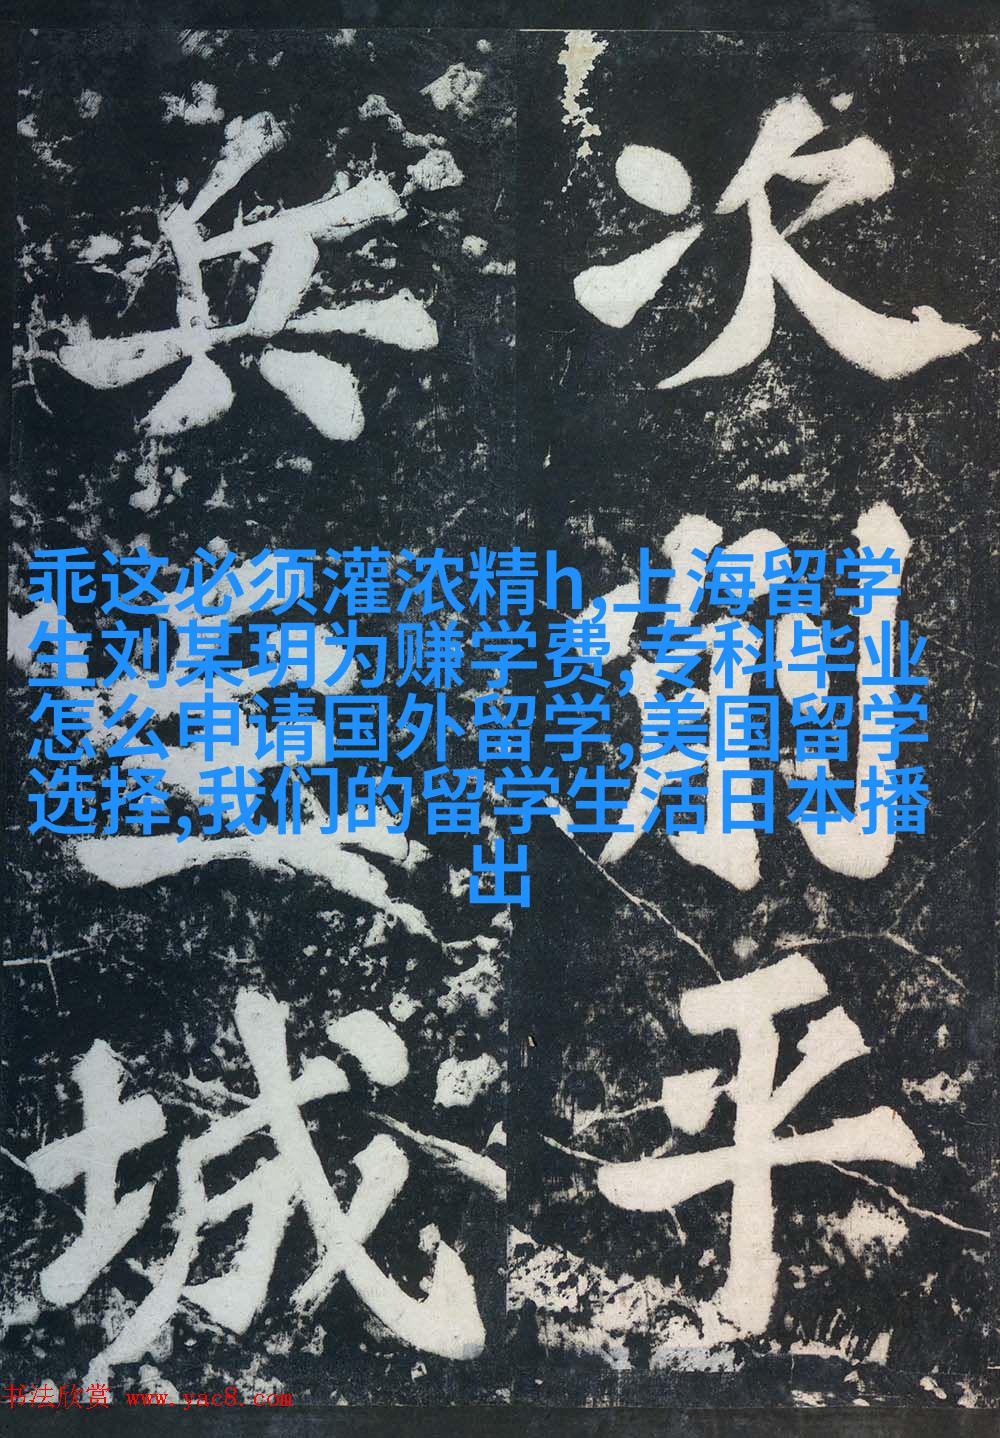 次
州
平
兵
城
乖这必须灌浓精h,上海留学
生刘某玥为赚学费,专科毕业
怎么申请国外留学,美国留学
选择,我们的留学生活日本播
出
书法欣赏 www.yac8.com